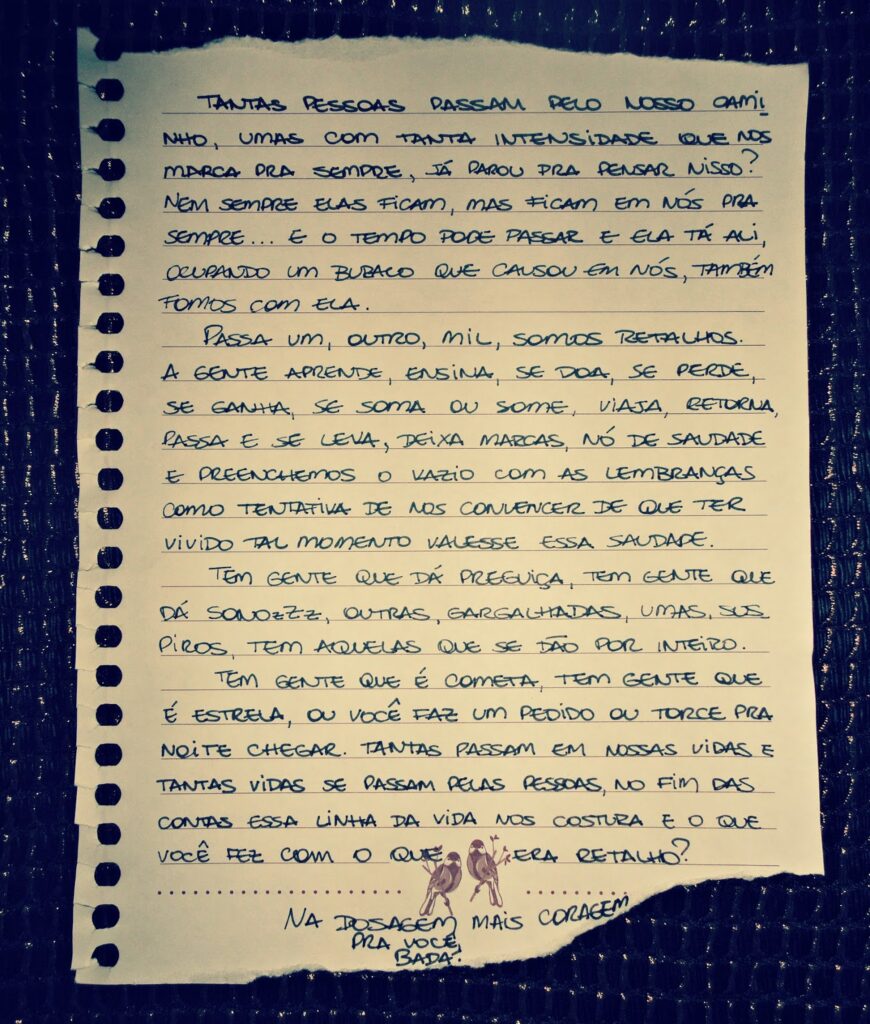 TANTAS PESSOAS PASSAM PELO NOSSO CAMI
NHO, UMAS COM TANTA INTENSIDADE QUE NOS
MARCA PRA SEMPRE, JÁ PAROU PRA PENSAR NISSO?
NEM SEMPRE ELAS FICAM, MAS FICAM EM NÓS PRA
SEMPRE... E O TEMPO PODE PASSAR E ELA TÁ ALI,
OCUPANDO UM BUBACO QUE CAUSOU EM NÓS, TAMBÉM
FOMOS COM ELA.
PASSA UM, OUTRO, MIL, SOMOS RETALHOS.
A GENTE APRENDE, ENSINA, SE DOA, SE PERDE,
SE GANHA, SE SOMA OU SOME, VIAJA, RETORNA,
PASSA E SE LEVA, DEIXA MARCAS, NÓ DE SAUDADE
E PREENCHEMOS O VAZIO COM AS LEMBRANÇAS
COMO TENTATIVA DE NOS CONVENCER DE QUE TER
VIVIDO TAL MOMENTO VALESSE ESSA SAUDADE.
TEM GENTE QUE DÁ PREGUIÇA, TEM GENTE QUE
DÁ SONOZZZ, OUTRAS, GARGALHADAS, UMAS, SUS
PIROS, TEM AQUELAS QUE SE DÃO POR INTEIRO.
TEM GENTE QUE É COMETA, TEM GENTE QUE
É ESTRELA, OU VOCÊ FAZ UM PEDIDO OU TORCE PRA
NOITE CHEGAR. TANTAS PASSAM EM NOSSAS VIDAS E
TANTAS VIDAS SE PASSAM PELAS PESSOAS, NO FIM DAS
CONTAS ESSA LINHA DA VIDA NOS COSTURA E O QUE
VOCÊ FEZ COM O QUE ERA RETALHO?
NA DOSAGEM MAIS CORAGEM
PRA VOCÊ,
BADÁ.